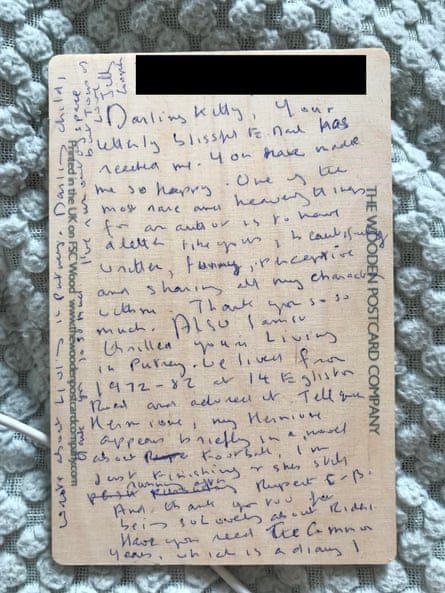 Darling Kitty, Your
utterly blissful E. Mail has
reached me. You have made
me so happy. One of the
most rare and heavenly things
for an author is to have
a letter like yours, beautifully
written, funny, perceptive
and sharing all my characters
with me. Thank you so so
much. Also I am so
thrilled you're living
in Putney. We lived from
1972-82 at 14 Egliston
Road and adored it. Tell your
Hermione, my Hermione
appears briefly in a novel
about football, I'm
just finishing & she's still
running after Rupert C-B.
And thank you too for
being so lovely about Rider.
Have you read The Common
Years, which is a diary I
wrote about living in Putney. Darling child,
thank you so much. I've run out of space
but tons of
love
Jilly
Cooper
THE WOODEN POSTCARD COMPANY
Printed in the UK on FSC Wood www.thewoodenpostcardcompany.com